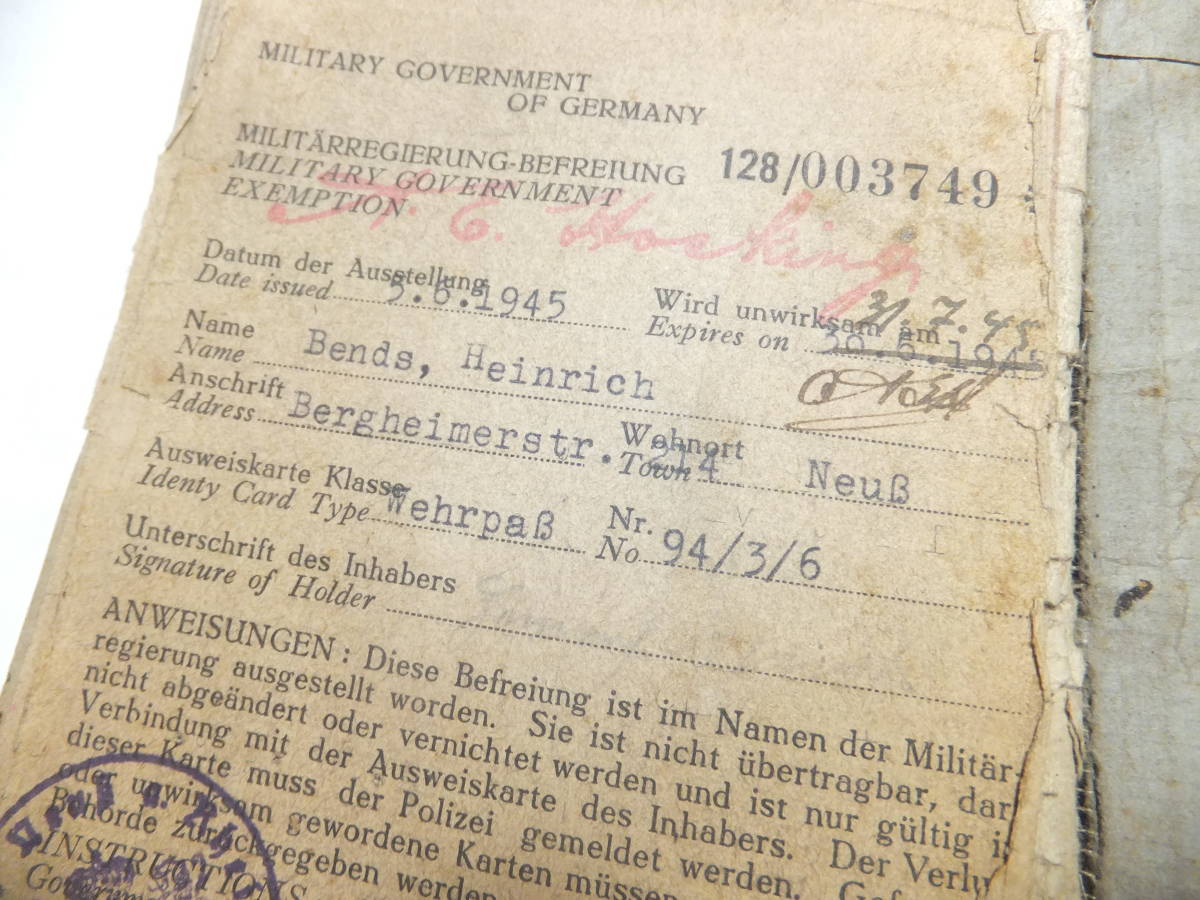 MILITARY GOVERNMENT
OF GERMANY
MILITÄRREGIERUNG-BEFREIUNG 128/003749
MILITARY GOVERNMENT
EXEMPTION
Hosking
Datum der Ausstellung Wird unwirksam am 31.7.45
Date issued 5.6.1945 Expires on 30.6.1945
Name
Name Bends, Heinrich
Anschrift Wohnort
Address Bergheimerstr. 214 Town Neuß
Ausweiskarte Klasse Nr.
Identy Card Type Wehrpaß No. 94/3/6
Unterschrift des Inhabers
Signature of Holder
ANWEISUNGEN: Diese Befreiung ist im Namen der Militär-
regierung ausgestellt worden. Sie ist nicht übertragbar, dar
nicht abgeändert oder vernichtet werden und ist nur gültig i
Verbindung mit der Ausweiskarte des Inhabers. Der Verlu
dieser Karte muss der Polizei gemeldet werden. Gef
oder unwirksam gewordene Karten müssen
Behörde zurückgegeben werden
INSTRUCTIONS
Governm